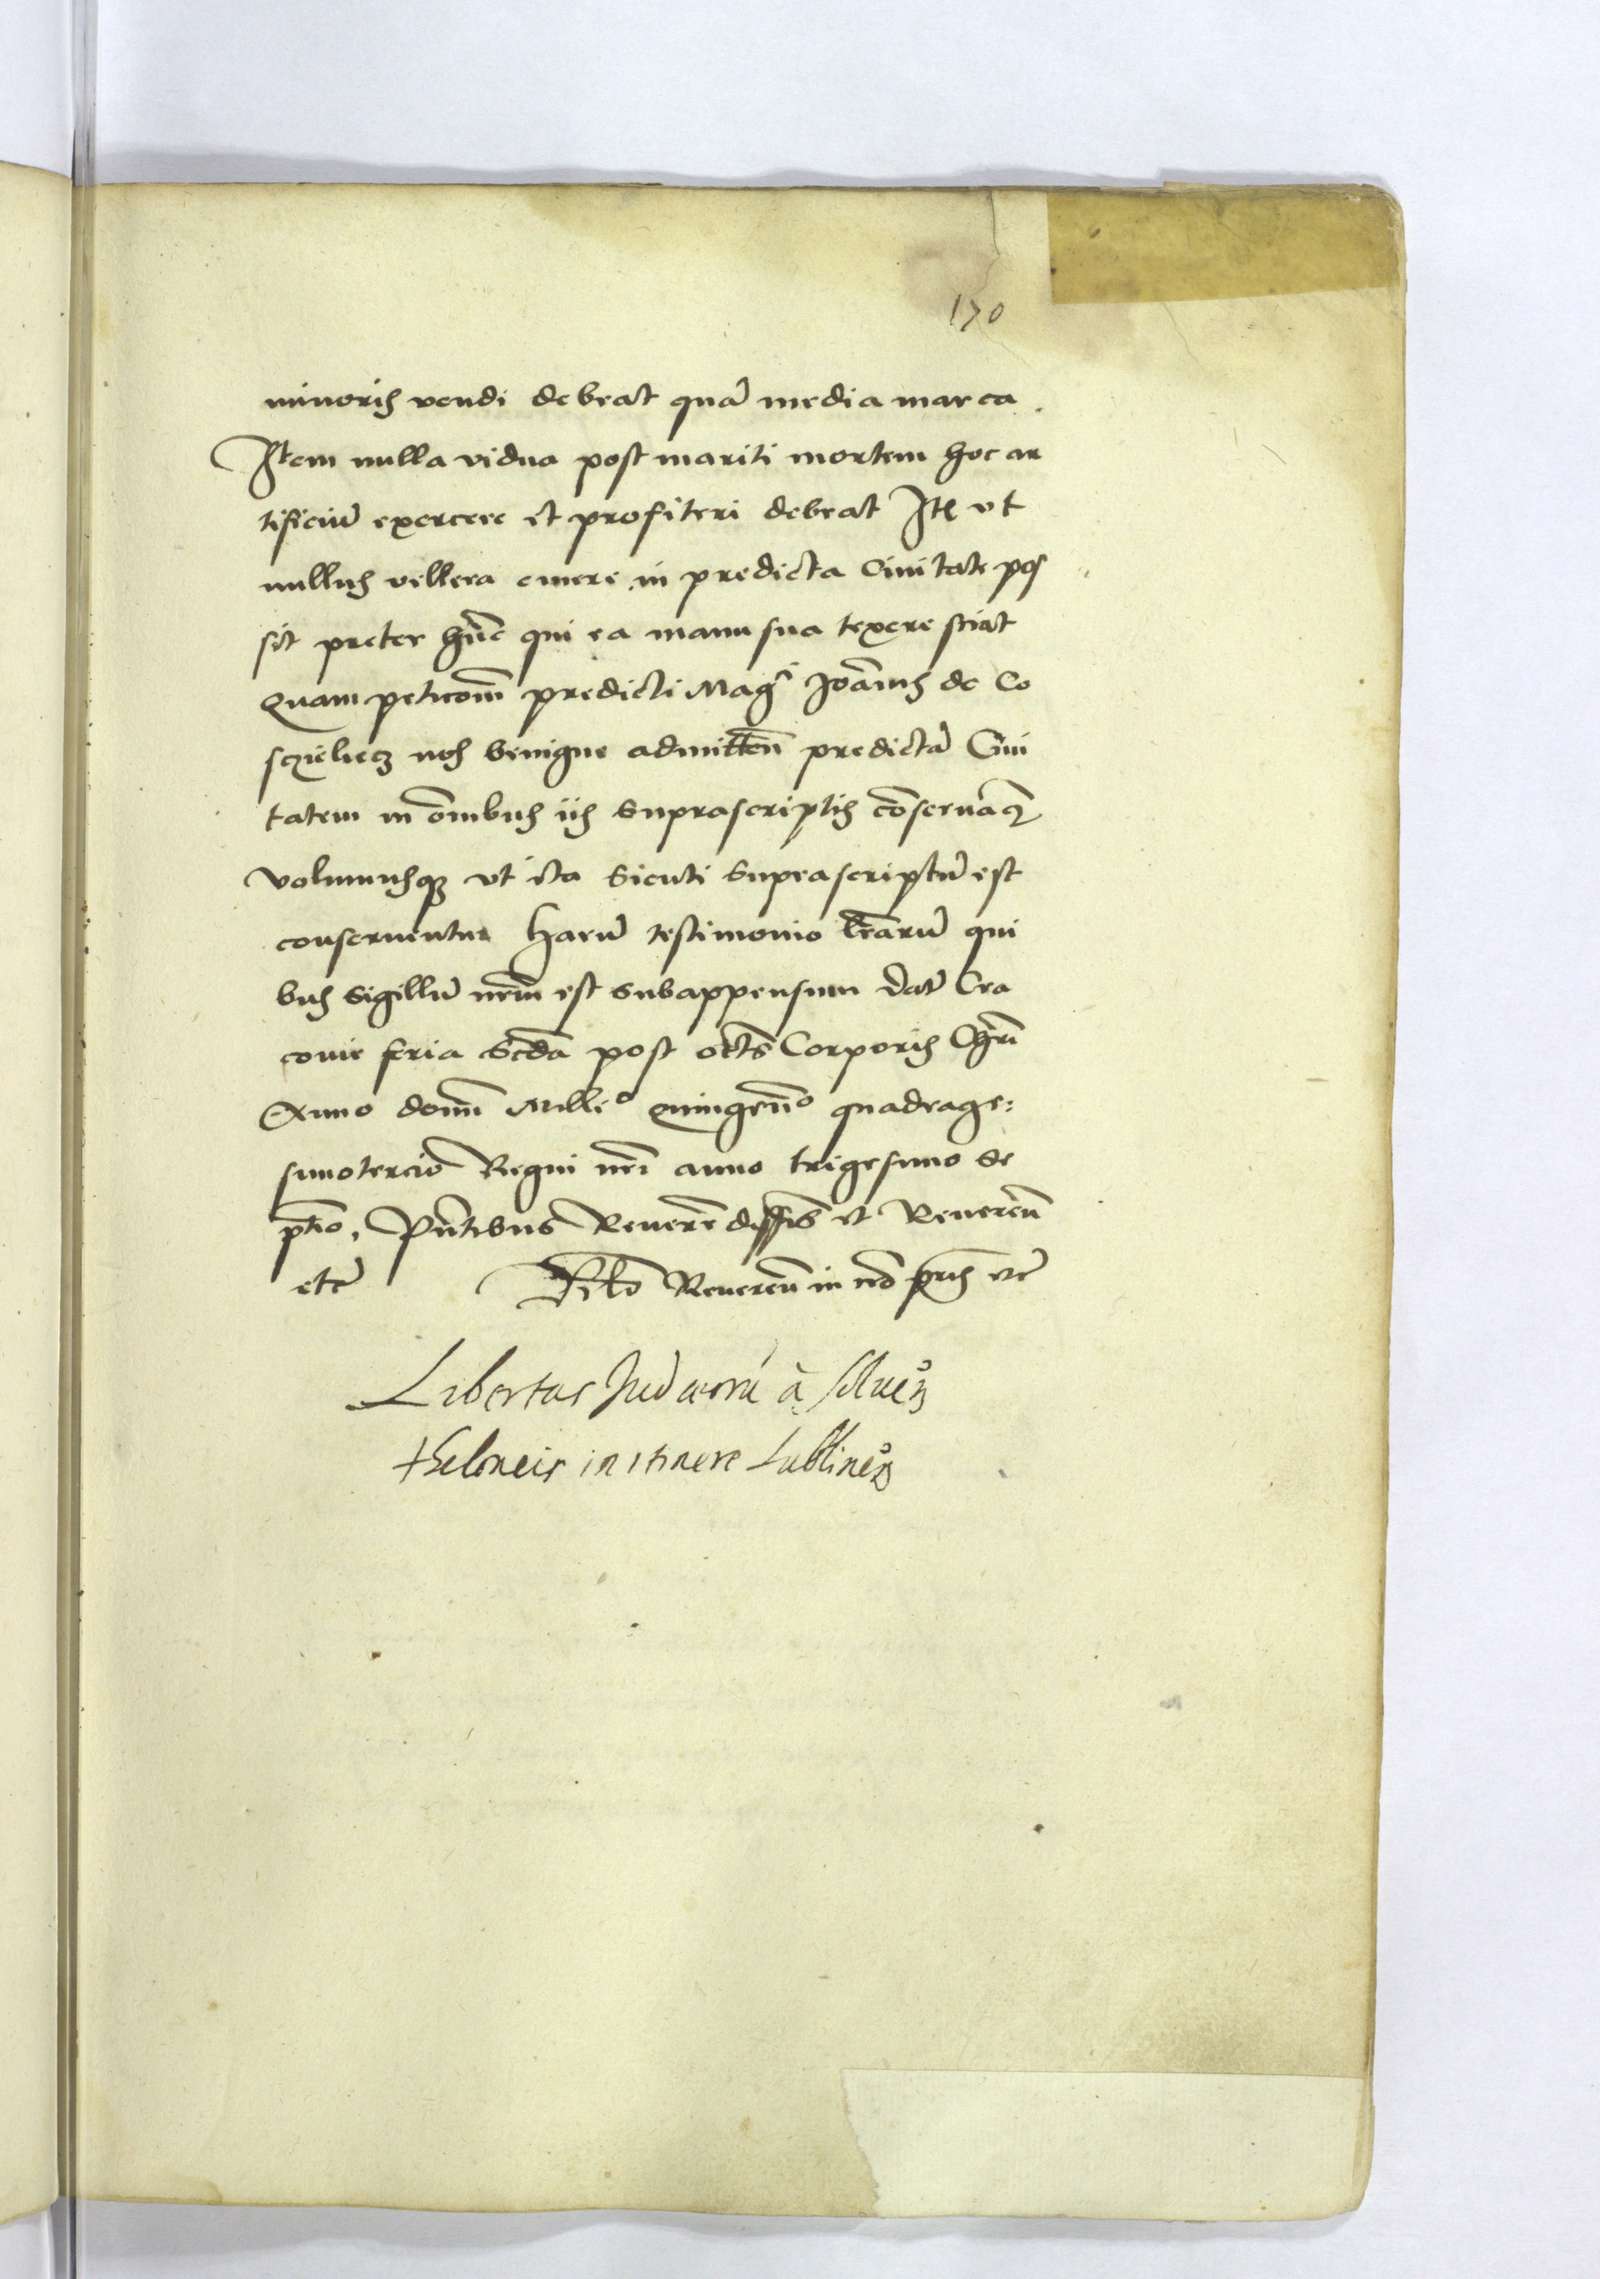 170
minoris vendi debeat quā media marca.
Item nulla vidua post mariti mortem hoc ar
tificiū exercere et profiteri debeat Itē vt
nullus vellera emere in predicta Ciuitate pos
sit preter hūc qui ea manu sua texere sciat
Quam peticonē predicti Magci Joānis de Co
sczieliecz nos benigne admitten̄ predictā Ciui
tatem in oībus iis suprascriptis cōseruam̄
volumusqз vt ita sicuti suprascriptū est
conseruentur Harū testimonio lr̄arū qui
bus sigillū nr̄m est subappensum Datū Cra
couie feria Scd̄a post octs̄ Corporis Chr̄i
Anno domī Millo Quingeno quadrage:
simotercio Regni nr̄i anno trigesimo se
ptīo. Pn̄tibus Reuerēdissīs et Reueren̄
etcē Relō Reueren̄ in xp̄o pr̄is etc̄
Libertas Judaeorū à
theloneis in itinere Lublinē